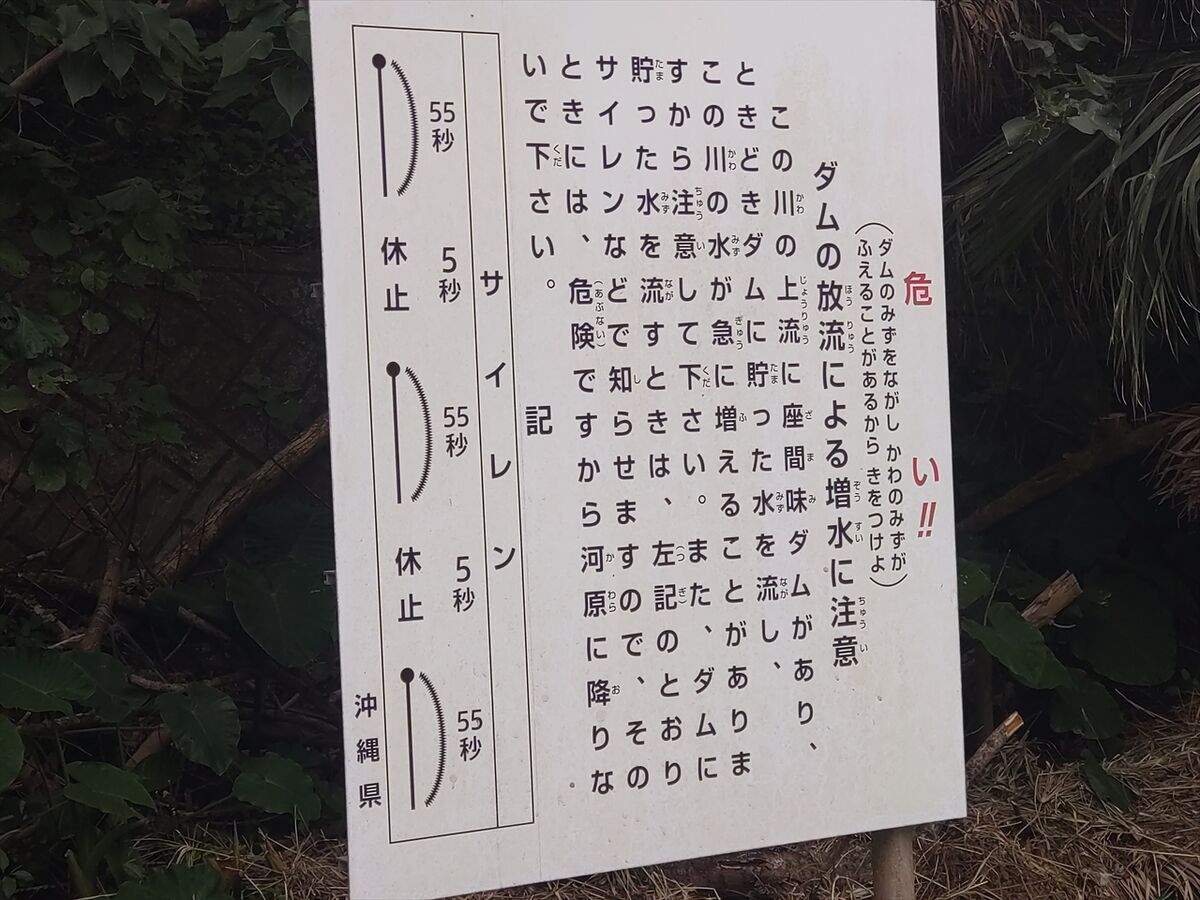 危い!!
(ダムのみずをながし かわのみずが
ふえることがあるから きをつけよ)
ダムの放流による増水に注意
この川の上流に座間味ダムがあり、
ときどきダムに貯った水を流し、
この川の水が急に増えることがありま
すから注意して下さい。また、ダムに
貯った水を流すときは、左記のとおり
サイレンなどで知らせますので、その
ときには、危険ですから河原に降りな
いで下さい。
記
サイレン
55秒
5秒
休止
55秒
5秒
休止
55秒
沖縄県